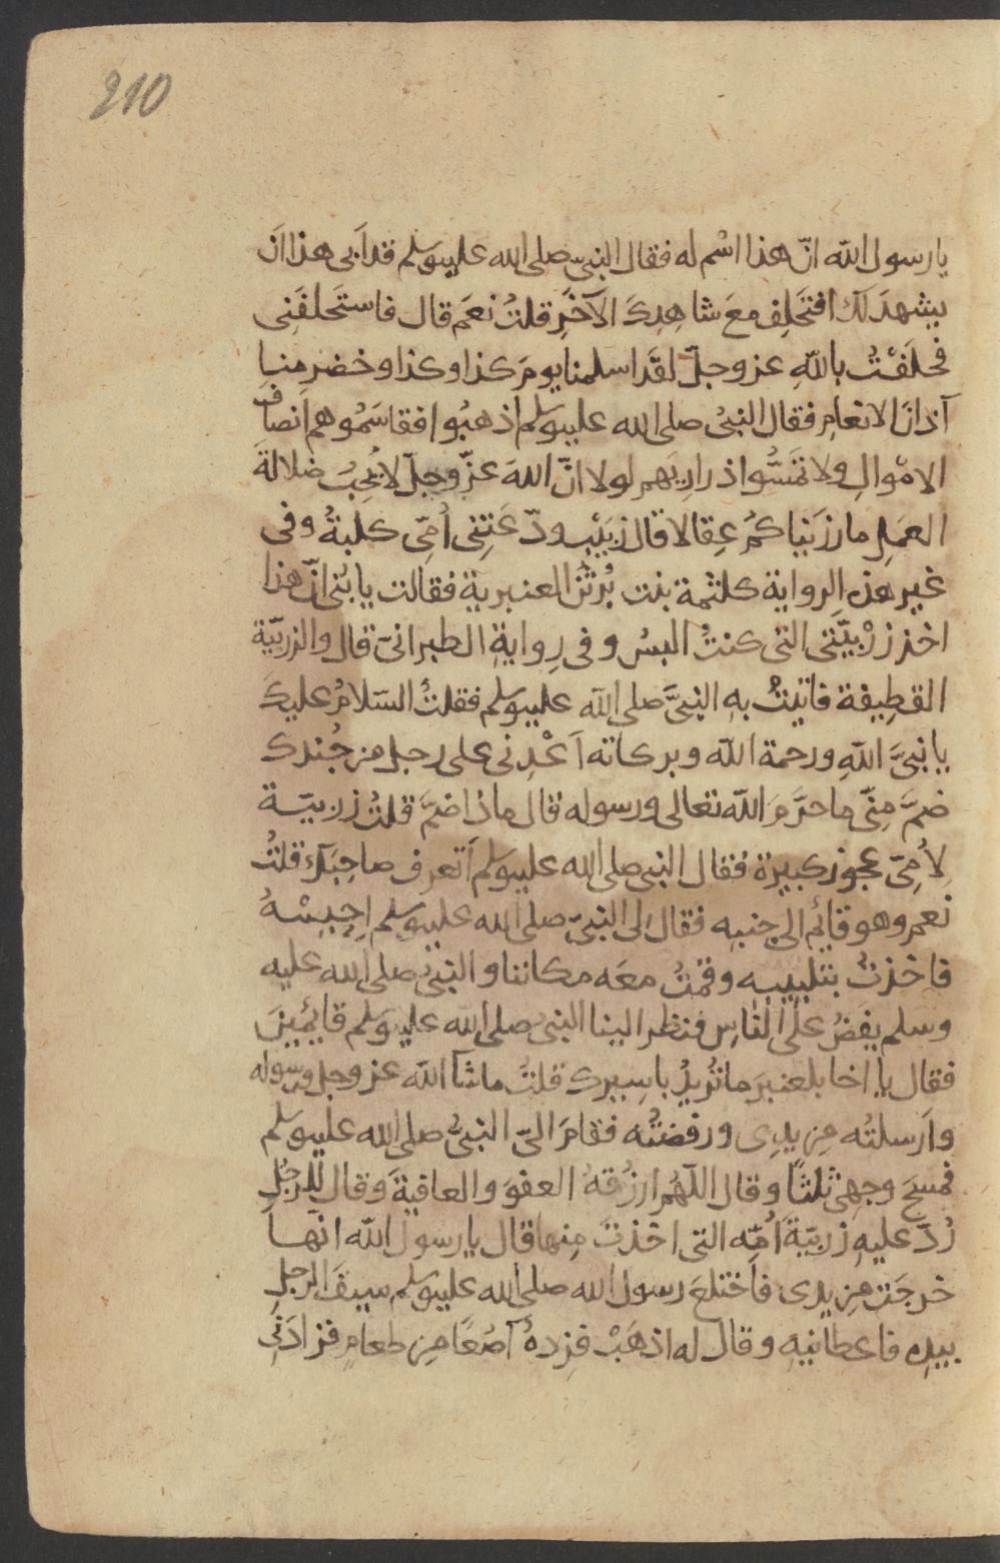 210
يا رسول الله انّ هذا اسْم له فقال النبى صلى الله عليه وسلم قد اَبى هذا اَن
يشهدَ لك افتَحلِف معَ شاهِدِكَ الآخَرِ قلتُ نعَم قال فاستَحلفَنِى
فحلَفْتُ بالله عز وجلّ لقَد اسلمنا يومَ كذا وكذا وخضرمنا
آذانَ الانعامِ فقال النبىُ صلى الله عليه وسلم اذهبُوا فقاسَمُوهم انصافَ
الامْوالِ ولا تمَسُّوا ذراريَهم لولا انَّ اللهَ عزّ وجلّ لا يُحِبُ ضلالةَ
العمَلِ ما رزَينَاكمُ عِقالا قال زبَيْب ودّعَتِنى اُمِّى كلبةُ وفى
غير هذه الرواية كلثمة بنت بُرثن العنبرية فقالت يا بُنى انّ هذا
اخذ زرْبيَّتى التى كنتُ البسُ وفى رِوايةِ الطبرانىّ قال والزربيّة
القطِيفة فاتيتُ بهِ النبىَّ صلى الله عليه وسلم فقلتُ السّلامُ عليكَ
يا نبىَّ اللهِ ورحمة الله وبركاته اَعْدِنى على رجل من جُندك
ضمَّ مِنّى ما حرَّمَ الله تعالى ورسوله قال ماذا ضمَّ قلتُ زربيّة
لاُمِىّ عجوز كبيرة فقال النبى صلى الله عليه وسلم اَتعرف صاحِبَك قلتُ
نعم وهو قائم الى جنبِه فقال لى النبىّ صلى الله عليه وسلم اِحبِسْهُ
فاخذتُ بتلبيبه وقمتُ معَه مكاننا والنبىُ صلى الله عليه
وسلم يقضُ على الناسِ فنظر الينا النبىُ صلى الله عليه وسلم قائمِينَ
فقال يا اخا بلعنبرَ ما تُرِيدُ باسِيرك قلتُ ما شآ الله عز وجل ورسوله
واَرسلتُه مِن يدِى ورفضتُه فقامَ الىّ النبىُ صلى الله عليه وسلم
فمسَحَ وجهِى ثلثًا وقال اللّهُم ارزُقهُ العفوَ والعافيةَ وقال للرجُلِ
رُدّ عليهِ زربيّةَ اُمّه التى اخذتَ مِنها قال يا رسول الله انّها
خرجَت مِن يدى فاختلعَ رسول الله صلى الله عليه وسلم سيفَ الرجلِ
بيدِه فاعطانِيهِ وقال له اذهَبْ فزِدهُ آصُعًا مِن طعامٍ فزادَنِى